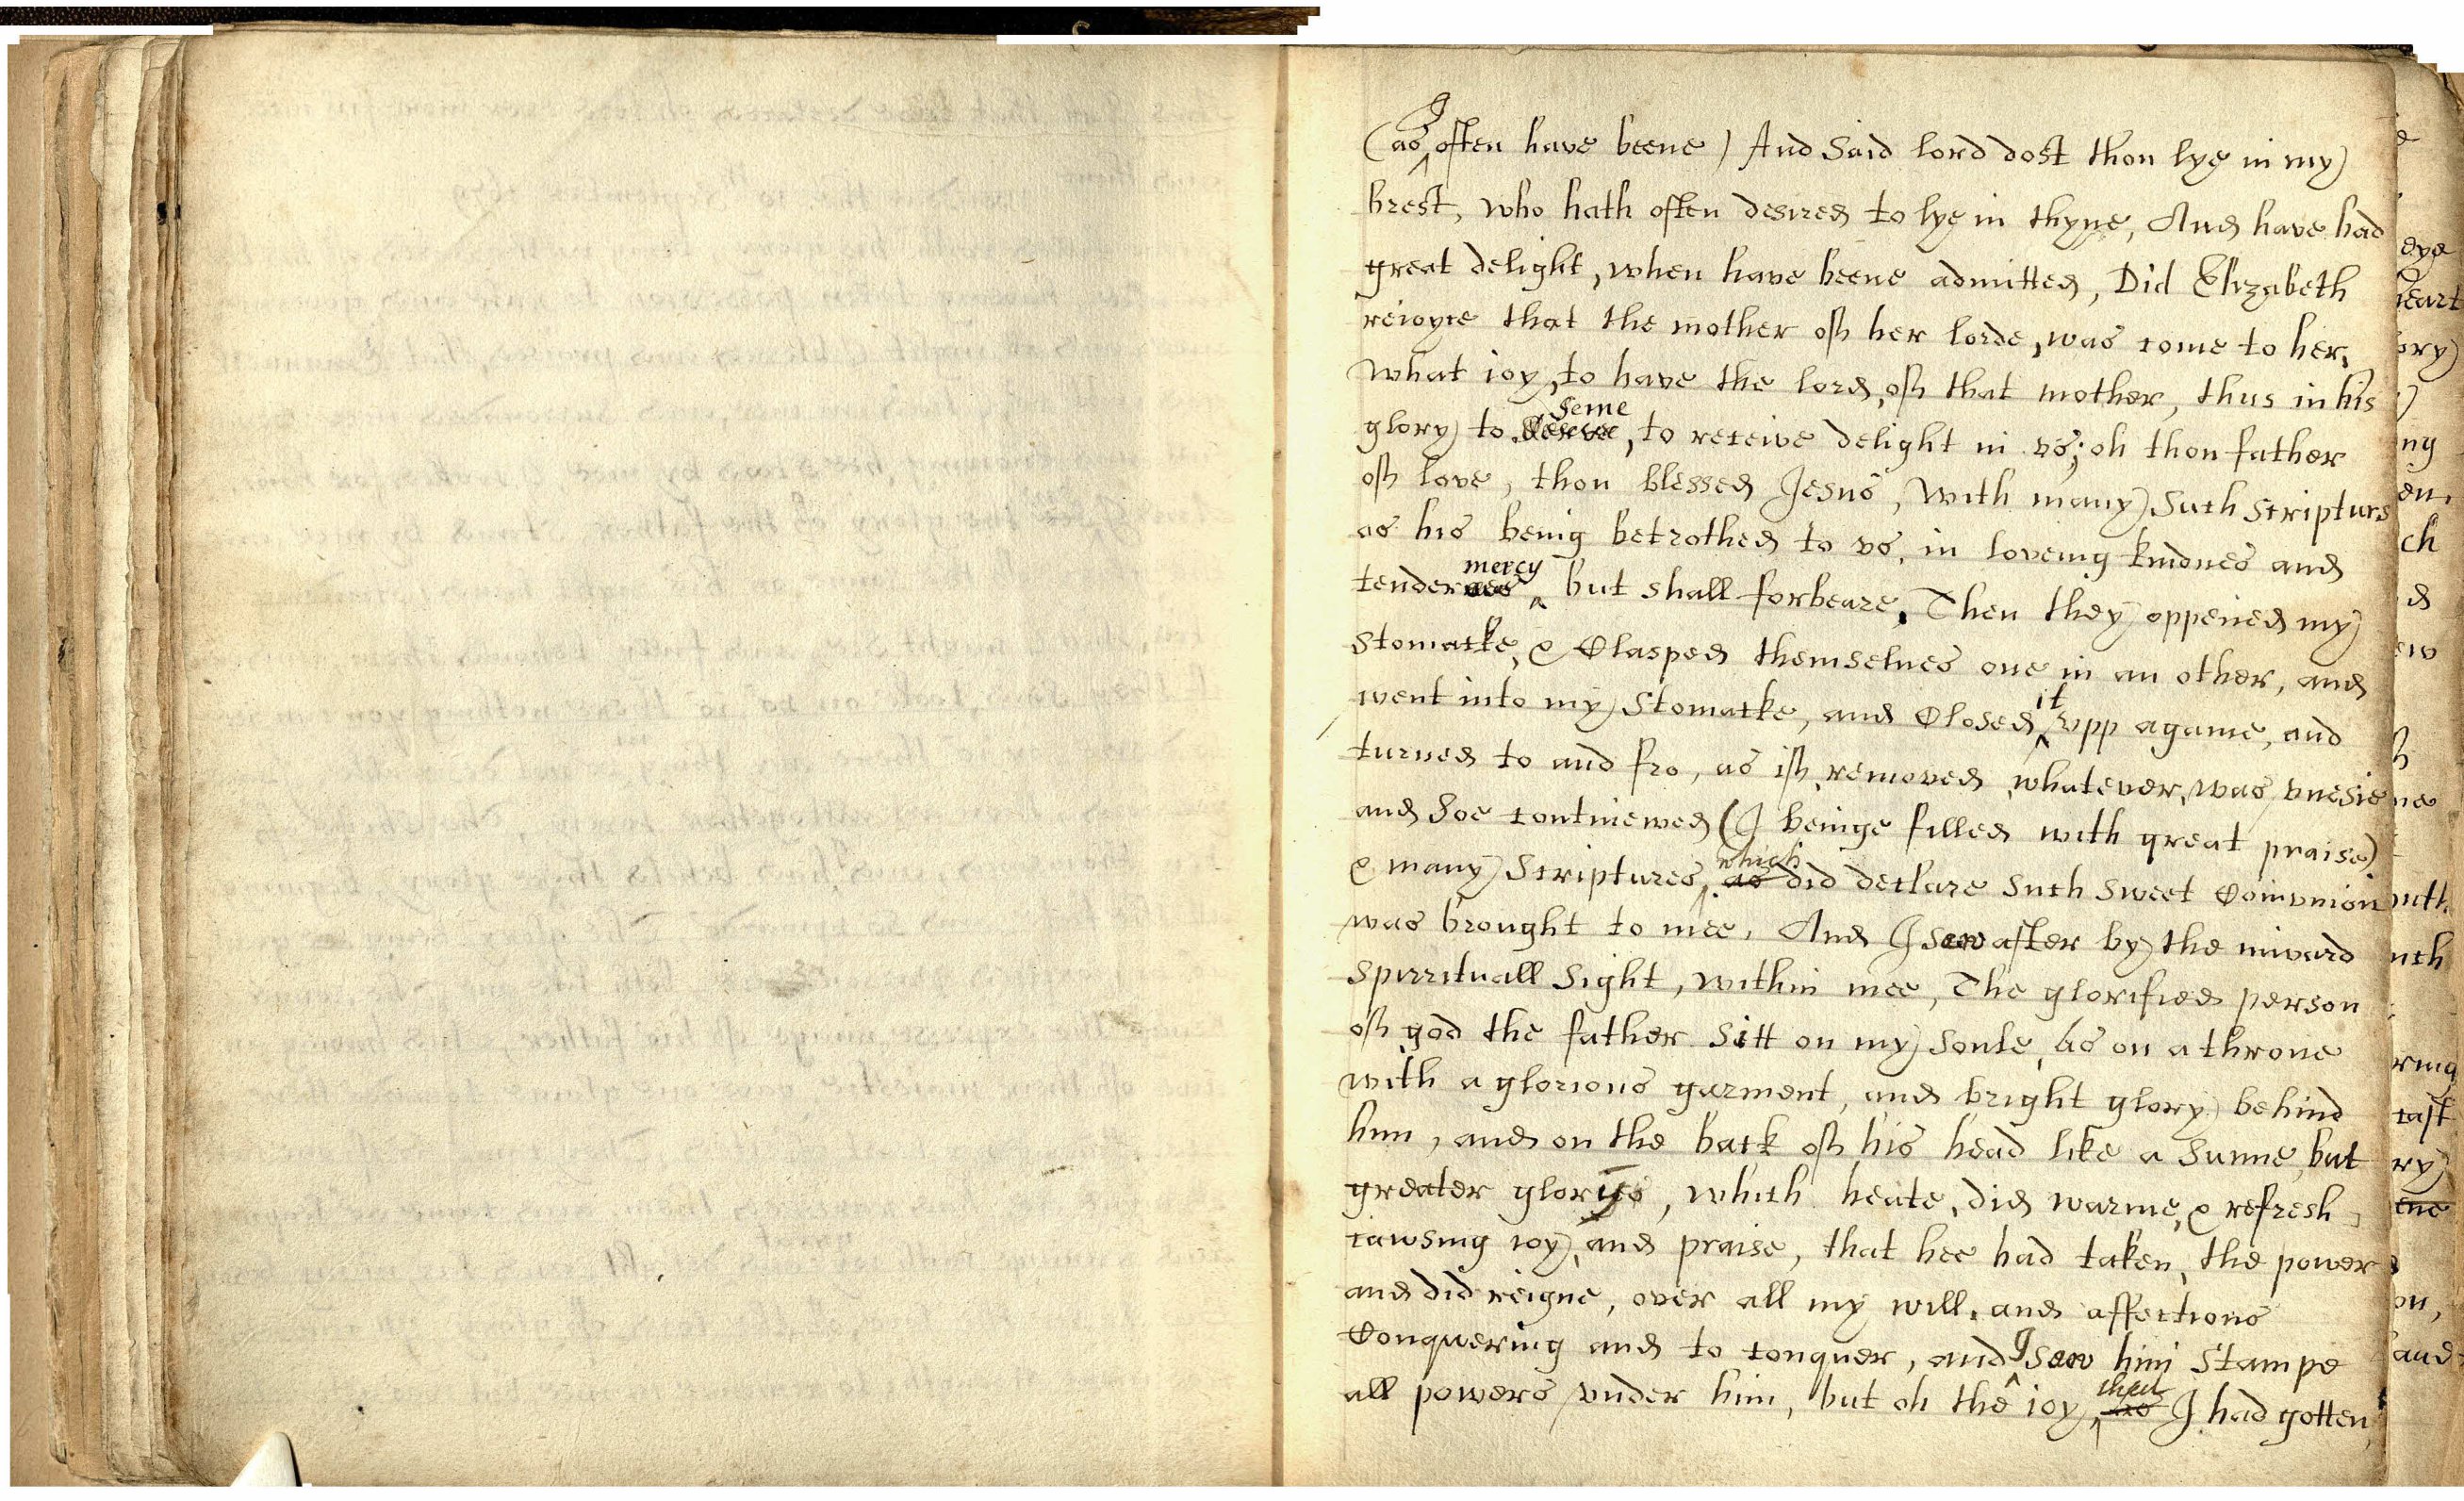 (as I often have beene) And Said lord dost thou lye in my
brest, who hath often desired to lye in thyne, And have had
great delight, when have beene admitted, Did Elizabeth
reioyce that the mother off her lorde, was come to her,
what ioy, to have the lord, off that mother, thus in his
glory to seme, to receive delight in vs; oh thou father
off love, thou blessed Jesus, with many Such Scripturs
as his being betrothed to vs, in loveing kindnes and
tender mercy but shall forbeare, Then they oppened my
Stomacke, & Clasped themselues one in an other, and
went into my Stomacke, and Closed it vpp againe, and
turned to and fro, as iff removed whatever, was vnesie
and Soe continewed (I beinge filled with great praise)
& many Scriptures, which did declare Such Sweet Comvnion
was brought to mee, And I saw after by the inward
Spirrituall Sight, within mee, The glorified person
off god the father Sitt on my Soule, as on a throne
with a glorious garment, and bright glory behind
him, and on the back off his head like a Sunne, but
greater glorys, which heate, did warme, & refresh
cawsing ioy, and praise, that hee had taken, the power
and did reigne, over all my will, and affections
Conquering and to conquer, and I saw him Stampe
all powers vnder him, but oh the ioy, that I had gotten,